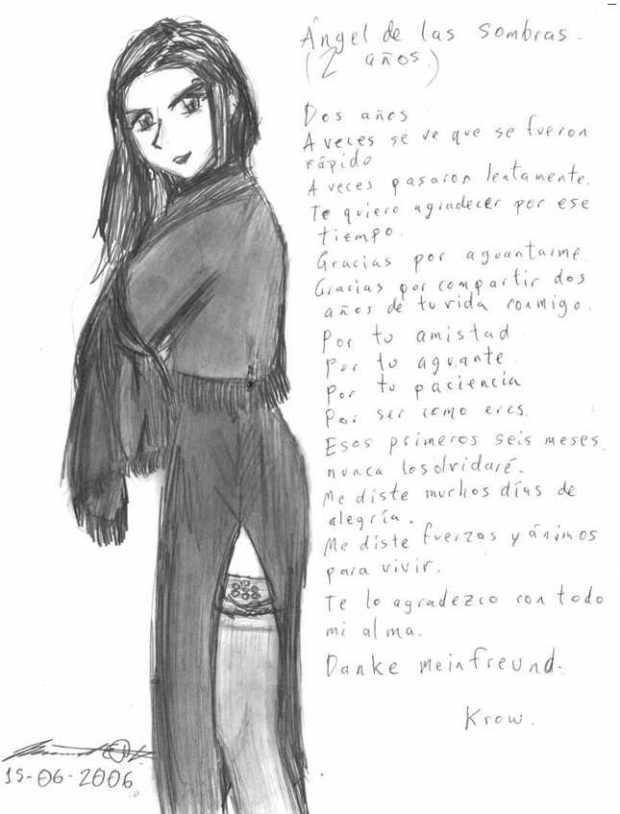 Ángel de las sombras.
(2 años.)
Dos años
A veces se ve que se fueron
rápido
A veces pasaron lentamente.
Te quiero agradecer por ese
tiempo.
Gracias por aguantarme.
Gracias por compartir dos
años de tu vida conmigo.
Por tu amistad
Por tu aguante.
Por tu paciencia
Por ser como eres.
Esos primeros seis meses
nunca los olvidaré.
Me diste muchos días de
alegría.
Me diste fuerzas y ánimos
para vivir.
Te lo agradezco con todo
mi alma.
Danke mein freund.
Krow.
15-06-2006